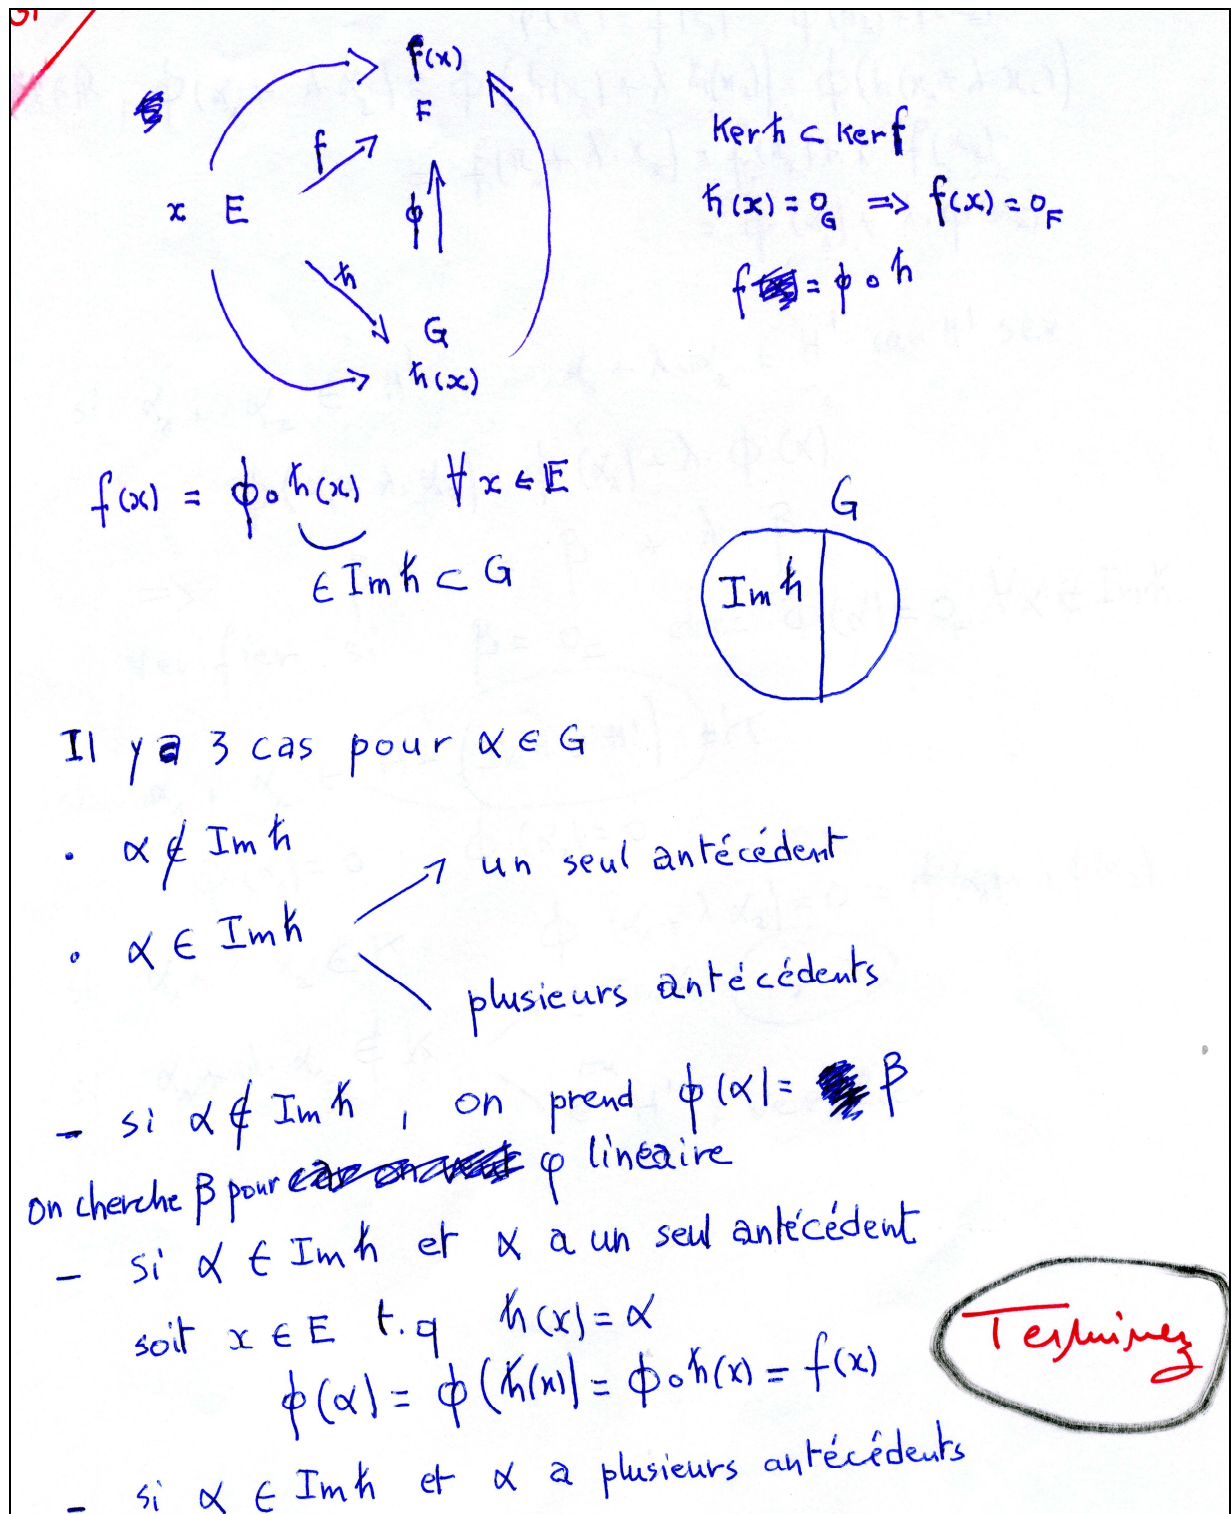 f(x)
F
f
x E
ϕ
h
G
h(x)
Ker h ⊂ Ker f
h(x) = 0_G ⇒ f(x) = 0_F
f = ϕ ∘ h
f(x) = ϕ∘h(x) ∀ x ∈ E
∈ Im h ⊂ G
G
Im h
Il y a 3 cas pour α ∈ G
• α ∉ Im h
un seul antécédent
• α ∈ Im h
plusieurs antécédents
– si α ∉ Im h , on prend ϕ(α) = β
on cherche β pour φ linéaire
– si α ∈ Im h et α a un seul antécédent
soit x ∈ E t.q h(x) = α
ϕ(α) = ϕ(h(x)) = ϕ∘h(x) = f(x)
Terminez
– si α ∈ Im h et α a plusieurs antécédents